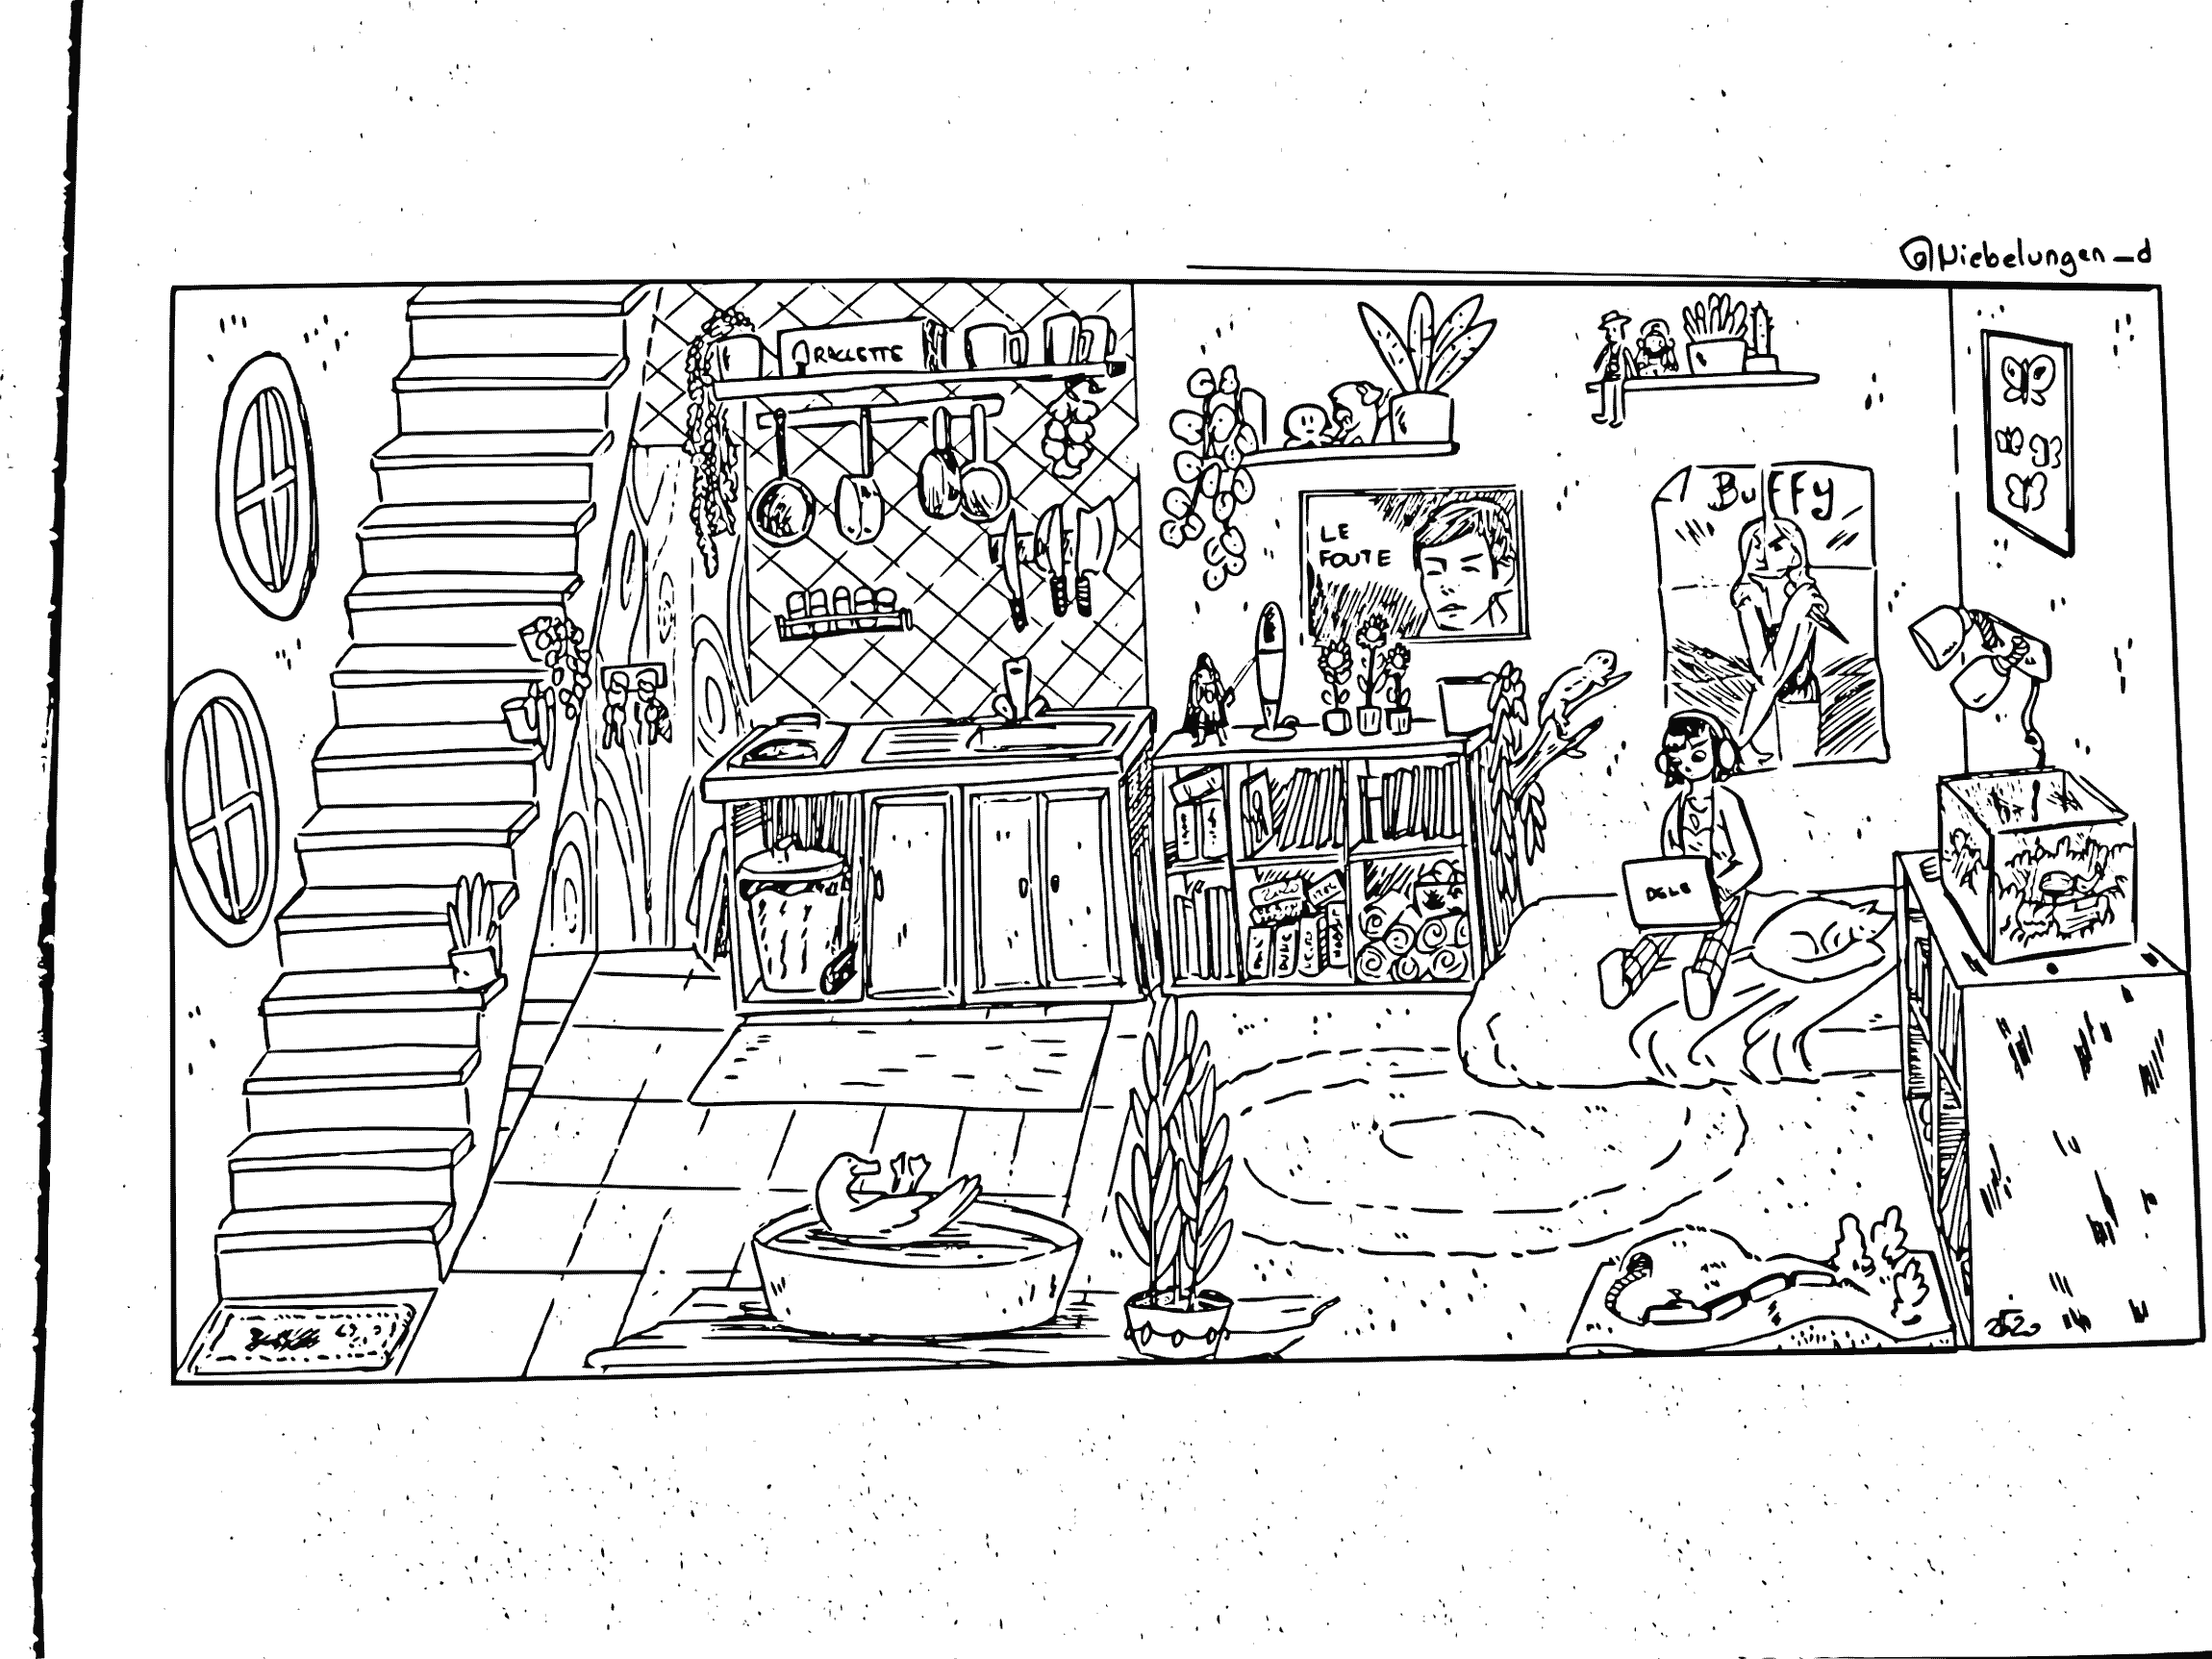 @Niebelungen_d
RACLETTE
LE
FOUTE
Buffy
DELB
DUNE
2020